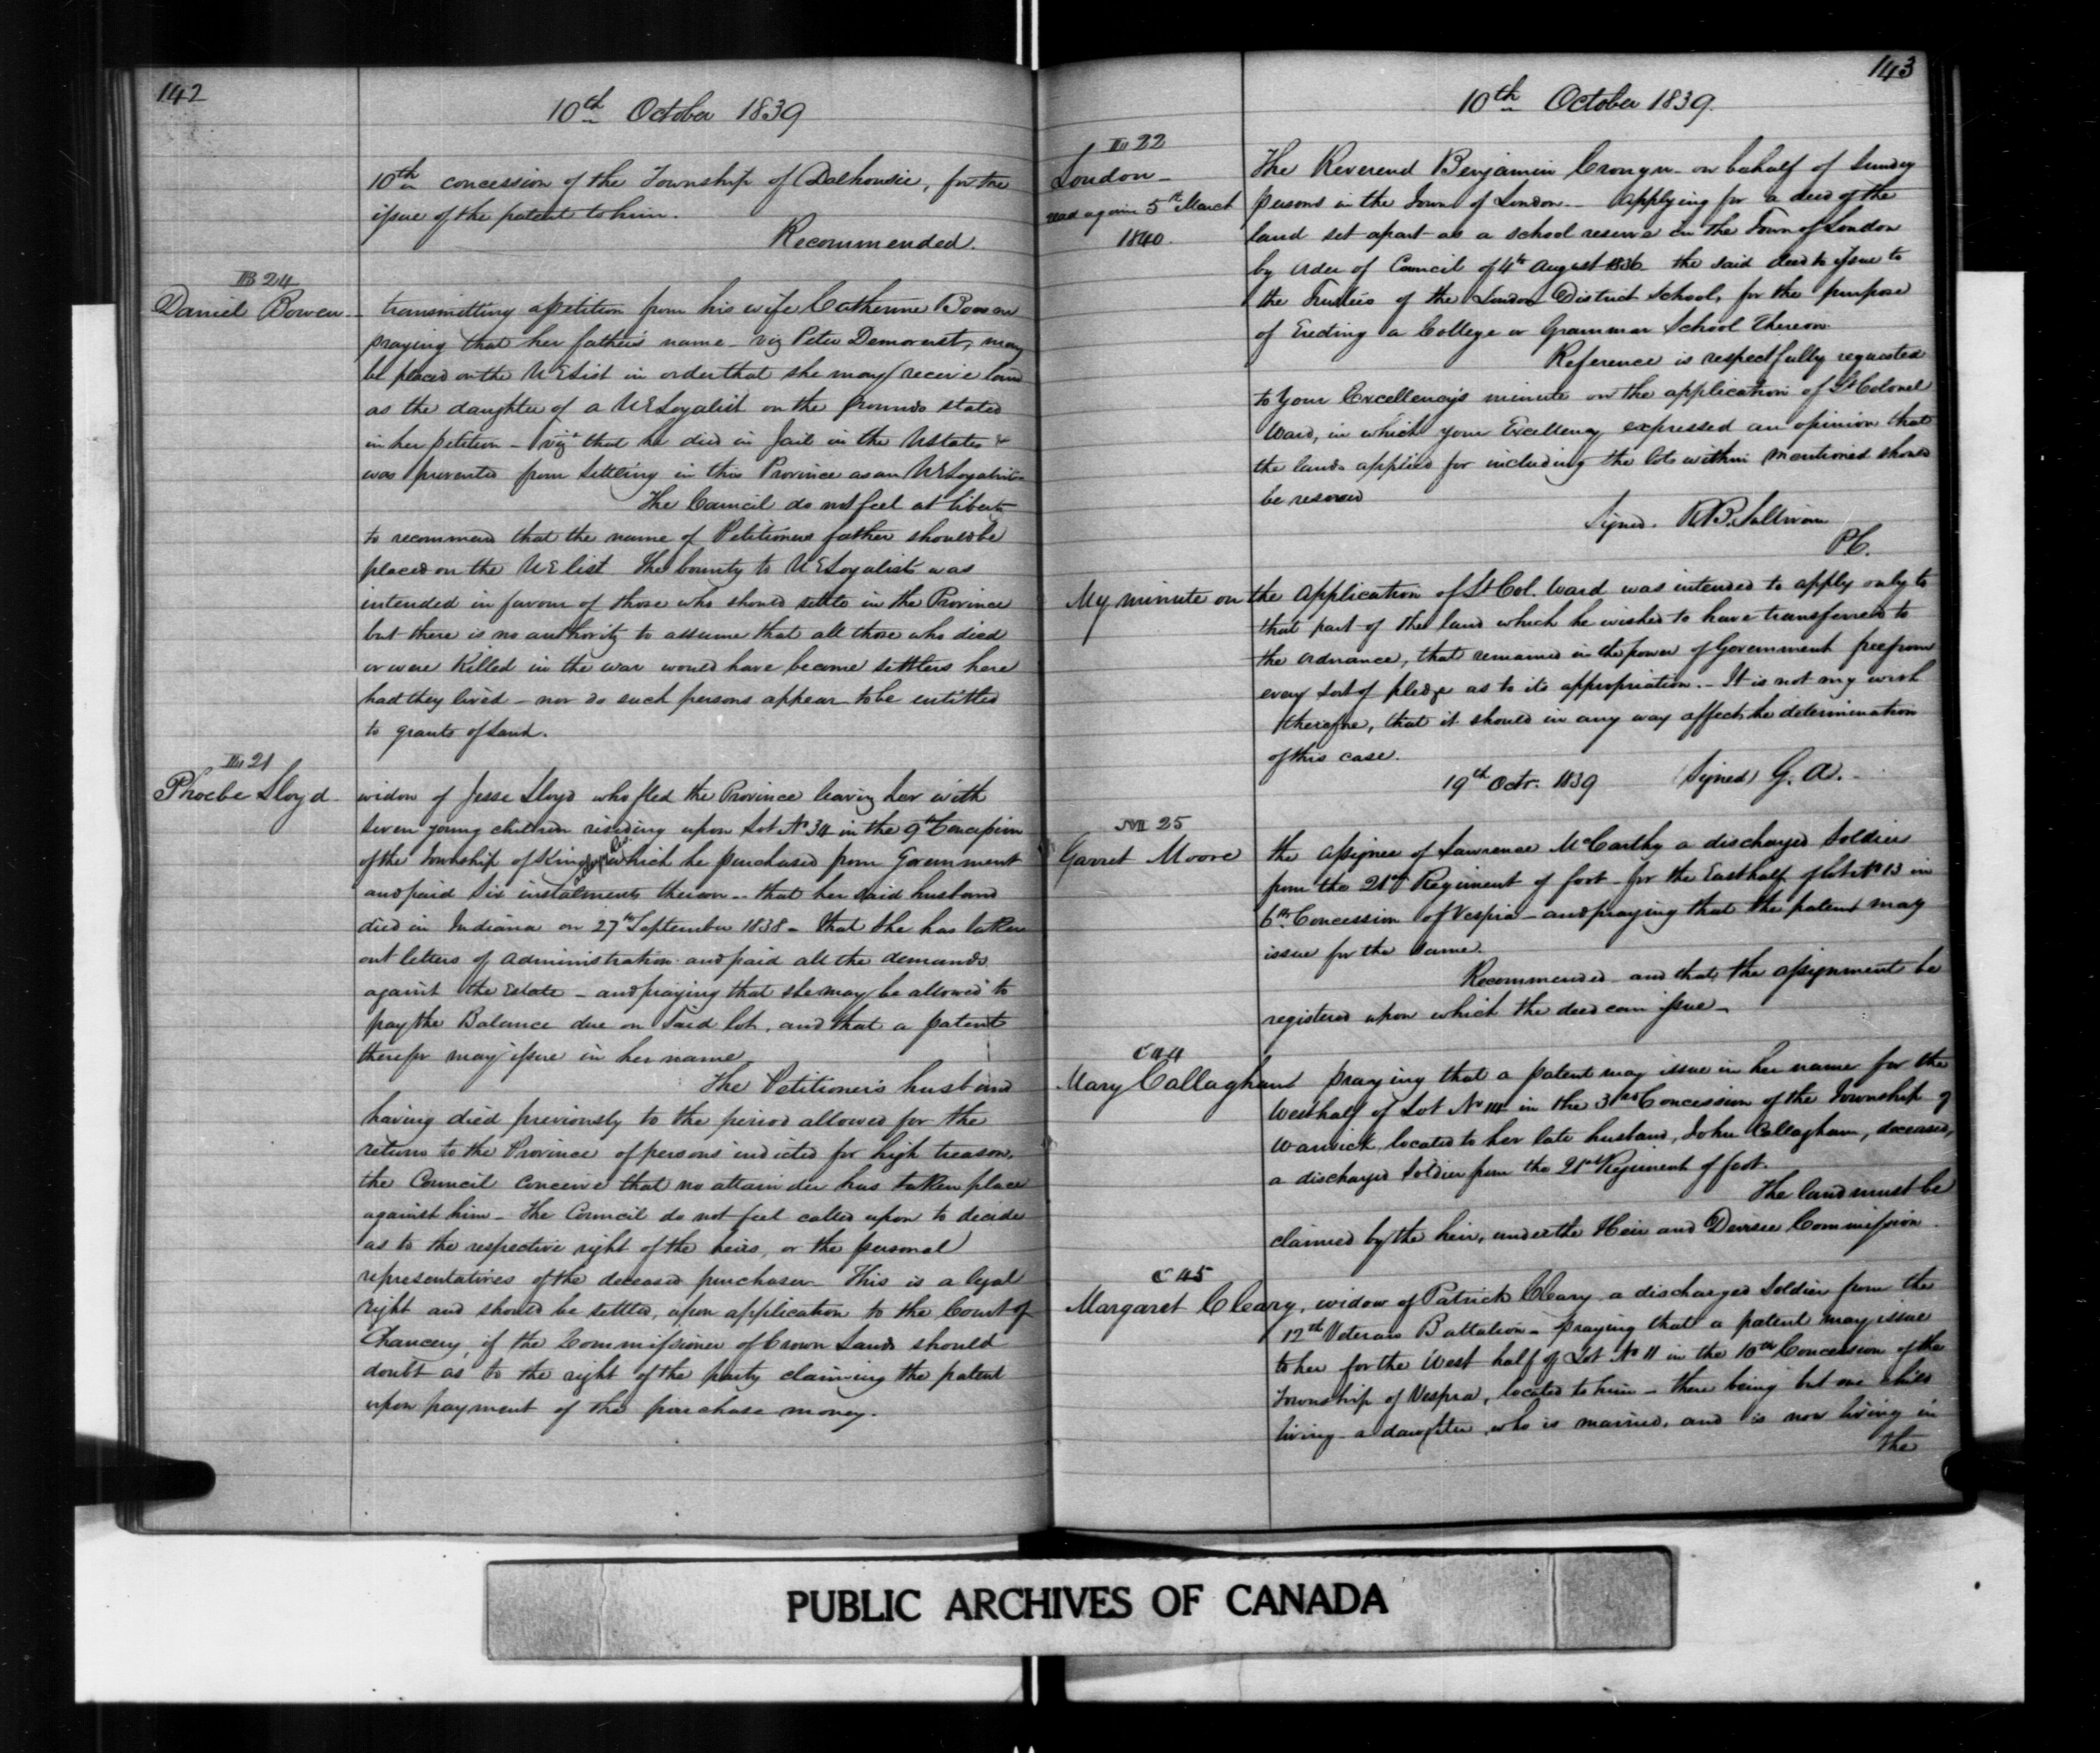 142
10th October 1839
10th concession of the Township of Dalhousie, for the
issue of the patent to him.
Recommended.
B 24
Daniel Bowen - transmitting a petition from his wife Catherine Bowen
praying that her father's name - viz Peter Demorest, may
be placed on the U E List in order that she may receive land
as the daughter of a U E Loyalist on the grounds stated
in her petition - viz that he died in Jail in the U States &
was prevented from settling in this Province as an U E Loyalist -
The Council do not feel at liberty
to recommend that the name of Petitioners father should be
placed on the U E list The bounty to U E Loyalists was
intended in favour of those who should settle in the Province
but there is no authority to assume that all those who died
or were Killed in the war would have become settlers here
had they lived - nor do such persons appear to be entitled
to grants of Land.
L 21
Phoebe Lloyd - widow of Jesse Lloyd who fled the Province leaving her with
seven young children residing upon Lot No 34 in the 9th Concession
of the Township of King which he purchased from Government
and paid six instalments thereon - that her said husband
died in Indiana on 27th September 1838 - that she has taken
out letters of administration and paid all the demands
against the Estate - and praying that she may be allowed to
pay the Balance due on said lot, and that a patent
therefor may issue in her name
The Petitioner's husband
having died previously to the period allowed for the
return to the Province of persons indicted for high treason,
the Council conceive that no attainder has taken place
against him - The Council do not feel called upon to decide
as to the respective right of the heirs, or the personal
representatives of the deceased purchaser - This is a legal
right and should be settled, upon application to the Court of
Chancery, if the Commissioner of Crown Lands should
doubt as to the right of the party claiming the patent
upon payment of the purchase money.
143
10th October 1839.
L 22
London -
read again 5th March
1840.
The Reverend Benjamin Cronyn - on behalf of sundry
persons in the Town of London - Applying for a deed of the
land set apart as a school reserve in the Town of London
by order of Council of 4th August 1836 the said deed to issue to
the Trustees of the London District School, for the purpose
of Erecting a College or Grammar School thereon.
Reference is respectfully requested
to Your Excellency's minute on the application of Lt Colonel
Ward, in which your Excellency expressed an opinion that
the lands applied for including the lots within mentioned should
be reserved
Signed. R B. Sullivan
P C.
My minute on the application of Lt Col. Ward was intended to apply only to
that part of the land which he wished to have transferred to
the ordnance, that remained in the power of Government free from
every sort of pledge as to its appropriation. - It is not my wish
therefore, that it should in any way affect the determination
of this case.
19th Octr. 1839 (Signed) G. A. -
M 25
Garret Moore the assignee of Lawrence McCarthy a discharged Soldier
from the 21st Regiment of foot - for the East half of lot No 13 in
6th Concession of Vespra - and praying that the patent may
issue for the same.
Recommended and that the assignment be
registered upon which the deed can issue -
C 44
Mary Callaghan praying that a patent may issue in her name for the
West half of Lot No 14 in the 3rd Concession of the Township of
Warwick, located to her late husband, John Callaghan, deceased,
a discharged Soldier from the 21st Regiment of foot.
The land must be
claimed by the heir, under the Heir and Devisee Commission
C 45
Margaret Cleary, widow of Patrick Cleary a discharged Soldier from the
12th Veteran Battalion - praying that a patent may issue
to her for the West half of Lot No 11 in the 10th Concession of the
Township of Vespra, located to him - there being but one child
living - a daughter, who is married, and is now living in
the
PUBLIC ARCHIVES OF CANADA